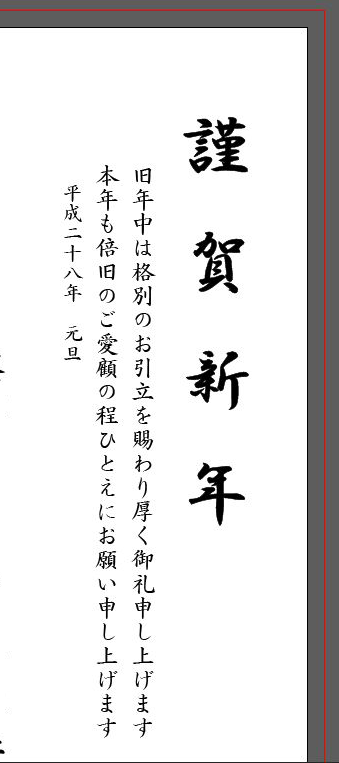 謹賀新年
旧年中は格別のお引立を賜わり厚く御礼申し上げます
本年も倍旧のご愛顧の程ひとえにお願い申し上げます
平成二十八年　元旦